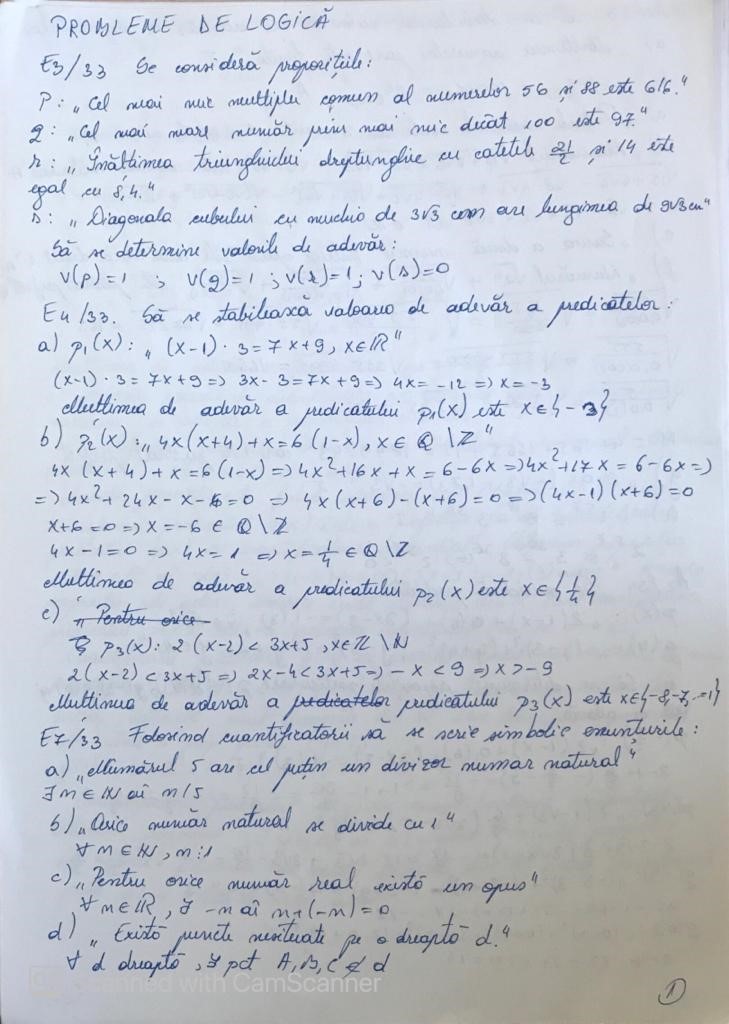 PROBLEME DE LOGICĂ
E3/33 Se consideră propozițiile:
p: „Cel mai mic multiplu comun al numerelor 56 și 88 este 616."
q: „Cel mai mare număr prim mai mic decât 100 este 97."
r: „Înălțimea triunghiului dreptunghic cu catetele 21/2 și 14 este
egal cu 8,4."
s: „Diagonala cubului cu muchia de 3√3 cm are lungimea de 9√3 cm"
Să se determine valorile de adevăr:
v(p)=1 ; v(q)=1 ; v(r)=1; v(s)=0
E4/33. Să se stabilească valoarea de adevăr a predicatelor:
a) p₁(x): „(x-1)·3=7x+9, x∈ℝ"
(x-1)·3=7x+9=> 3x-3=7x+9=> 4x=-12=> x=-3
Mulțimea de adevăr a predicatului p₁(x) este x∈{-3}
b) p₂(x): „4x(x+4)+x=6(1-x), x∈ℚ\ℤ"
4x(x+4)+x=6(1-x)=>4x²+16x+x=6-6x=>4x²+17x=6-6x=>
=>4x²+24x-x-6=0 => 4x(x+6)-(x+6)=0=>(4x-1)(x+6)=0
x+6=0=>x=-6∈ℚ\ℤ
4x-1=0=> 4x=1 =>x=1/4∈ℚ\ℤ
Mulțimea de adevăr a predicatului p₂(x) este x∈{1/4}
c) „Pentru orice
p₃(x): 2(x-2)<3x+5, x∈ℤ\ℕ
2(x-2)<3x+5=> 2x-4<3x+5=>-x<9=>x>-9
Mulțimea de adevăr a predicatelor predicatului p₃(x) este x∈{-8,-7,-1}
E7/33 Folosind cuantificatorii să se scrie simbolic enunțurile:
a) „Numărul 5 are cel puțin un divizor numar natural"
∃n∈ℕ aî n/5
b) „Orice număr natural se divide cu 1"
∀n∈ℕ, n⋮1
c) „Pentru orice număr real există un opus"
∀n∈ℝ, ∃-n aî n+(-n)=0
d) „Există puncte nesituate pe o dreaptă d."
∀ d dreaptă, ∃ pct A, B, C ∉ d
Scanned with CamScanner
1